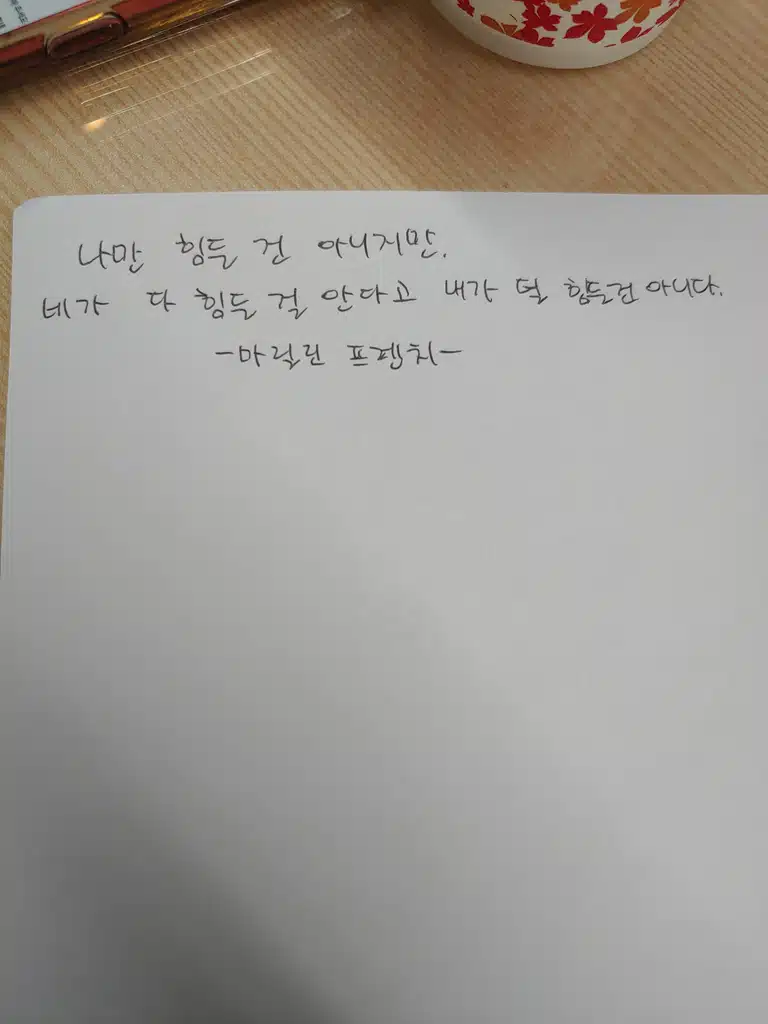 나만 힘들 건 아니지만,
네가 다 힘들 걸 안다고 내가 덜 힘든건 아니다.
-마릴린 프렌치-